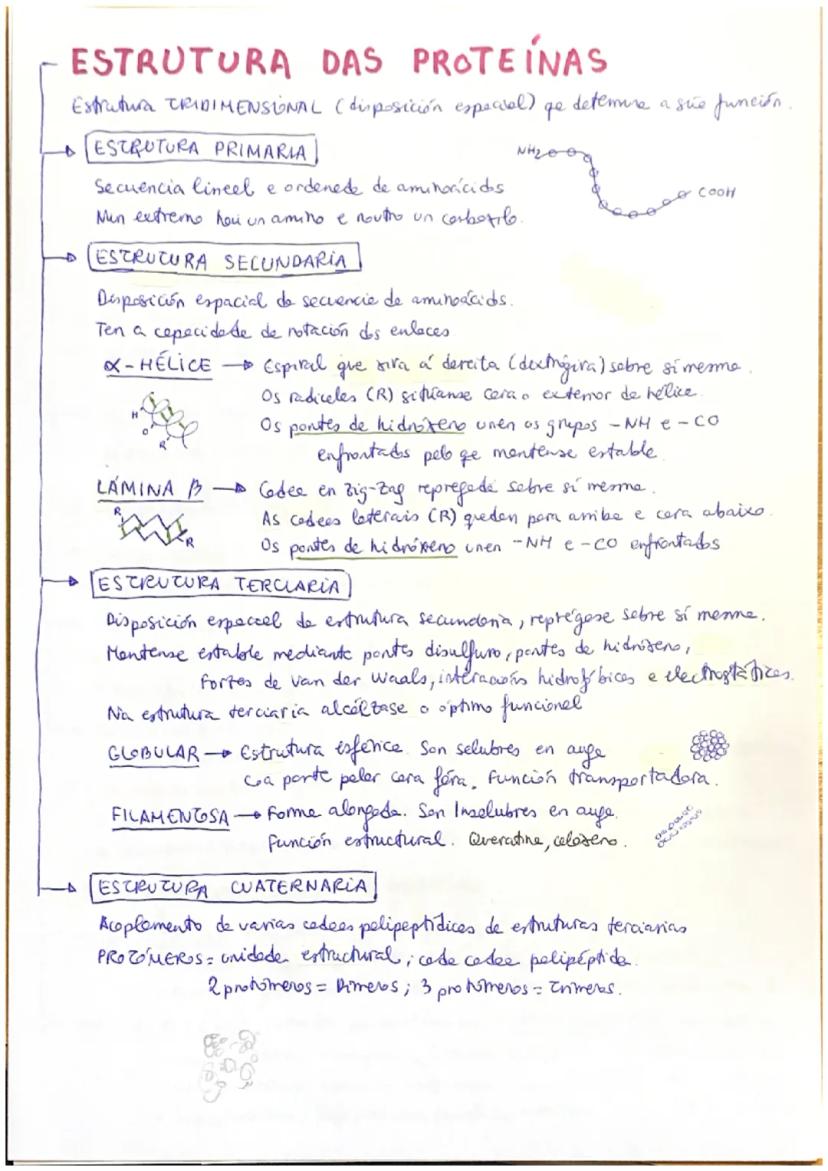 ESTRUTURA DAS PROTEÍNAS
Estrutura TRIDIMENSIONAL (disposición espacial) qe determina a súa función.
ESTRUTURA PRIMARIA
NH2
COOH
Secuencia lineal e ordenada de aminoácidos
Nun extremo hai un amino e noutro un carboxilo.
ESTRUTURA SECUNDARIA
Disposición espacial da secuencia de aminoácids.
Ten a capacidade de rotación ds enlaces
α-HÉLICE → Espiral que xira á dereita (dextróxira) sobre sí mesma.
Os radicales (R) sitúanse cara o exterior da hélice.
H
O
R
Os pontes de hidróxeno unen os grupos -NH e -CO
enfrontads polo qe mantense estable.
LÁMINA β → Cadea en Zig-Zag repregada sobre sí mesma.
R
R
As cadeas laterais (R) quedan para arriba e cara abaixo.
Os pontes de hidróxeno unen -NH e -CO enfrontados
ESTRUTURA TERCIARIA
Disposición espacial da estrutura secundaria, reprégase sobre sí mesma.
Mantense estable mediante pontes disulfuro, pontes de hidróxeno,
fortes de Van der Waals, interacións hidrofóbicas e electrostáticas.
Na estrutura terciaria alcánzase o óptimo funcional
GLOBULAR → Estrutura esférica. Son solubres en auga
coa parte polar cara fóra. Función transportadora.
FILAMENTOSA → Forma alongada. Son Insolubres en auga.
Función estructural. Queratina, coláxeno.
ESTRUTURA CUATERNARIA
Acoplamento de varias cadeas polipeptídicas de estruturas terciarias
PROTÓMEROS = unidade estructural, cada cadea polipéptida.
2 protómeros = Dímeros; 3 protómeros = Trímeros.